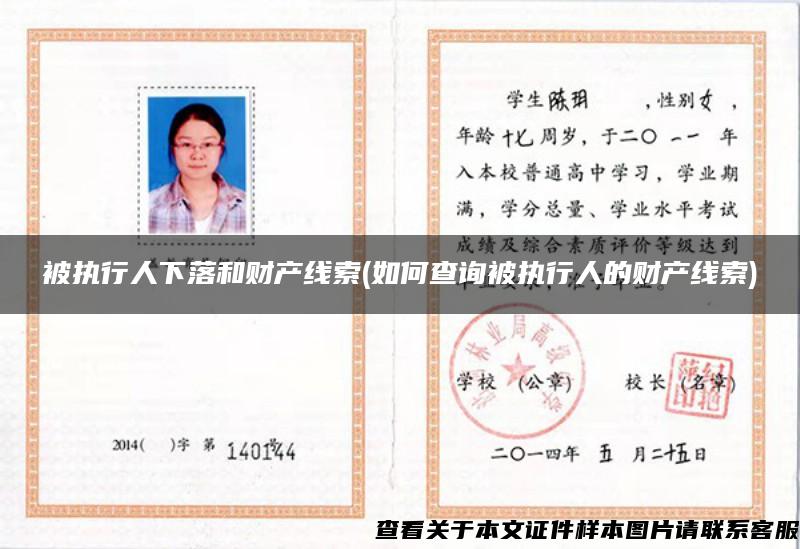 2014( )字 第 140144 号
学生陈玥 ,性别女,
年龄十七周岁,于二〇一一年
入本校普通高中学习,学业期
满,学分总量、学业水平考试
成绩及综合素质评价等级达到
被执行人下落和财产线索(如何查询被执行人的财产线索)
林业局高级
学校 (公章) 校长 (名章)
二〇一四年 五 月二十五日
查看关于本文证件样本图片请联系客服